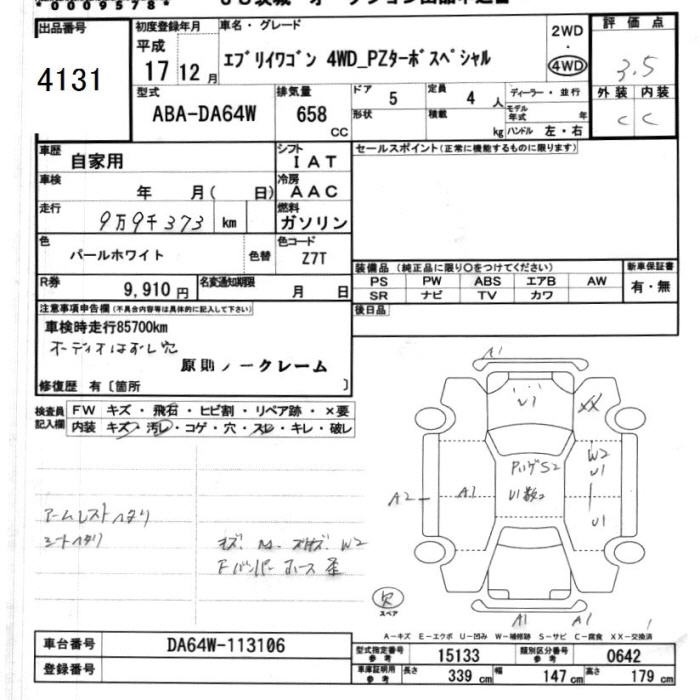 *0009578*
出品番号
4131
初度登録年月
平成
17 12月
車名・グレード
エブリイワゴン 4WD_PZターボスペシャル
2WD
・
4WD
評価点
3.5
外装 内装
C C
型式
ABA-DA64W
排気量
658
CC
ドア
5
定員
4 人
形状
積載
kg
ディーラー・並行
モデル年式
年
ハンドル 左・右
車歴
自家用
シフト
IAT
セールスポイント(正常に機能するものに限ります)
車検
年 月( 日)
冷房
AAC
走行
9万9千373 km
燃料
ガソリン
色
パールホワイト
色替
色コード
Z7T
R券
9,910 円
名変通知期限
月 日
装備品 (純正品に限り○をつけてください)
新車保証書
PS PW ABS エアB AW
SR ナビ TV カワ
有・無
後日品
注意事項申告欄(不具合内容等は具体的に記入して下さい)
車検時走行85700km
オーディオはずし穴
原則ノークレーム
修復歴 有〔箇所 〕
検査員記入欄
FW キズ・飛石・ヒビ割・リペア跡・×要
内装 キズ・汚レ・コゲ・穴・スレ・キレ・破レ
A1
U1
XX
W2
U1
PハゲS2
U1数コ
A2
A1
U1
アームレストヘタリ
シートヘタリ
W2
Fバンパー
欠
スペア
A1
A1
A-キズ E-エクボ U-凹み W-補修跡 S-サビ C-腐食 XX-交換済
車台番号
DA64W-113106
登録番号
型式指定番号
参考
15133
類別区分番号
参考
0642
車庫証明用
参考
長さ
339 cm
幅
147 cm
高さ
179 cm